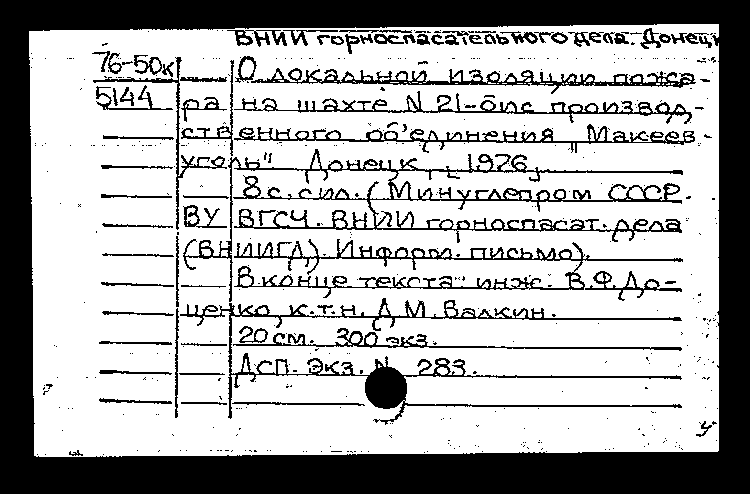 ВНИИ горноспасательного дела. Донецк
76-50к О локальной изоляции пожа-
5144 ра на шахте N 21-бис производ,-
ственного об'единения „Макеев-
уголь" Донецк, 1976,
8 с. сил. (Минуглепром СССР.
ВУ ВГСЧ. ВНИИ горноспасат. дела
(ВНИИГД). Информ. письмо).
В конце текста: инж. В.Ф. До-
ценко, к.т.н. Д.М. Валкин.
20 см. 300 экз.
Дсп. Экз. N 283.
у